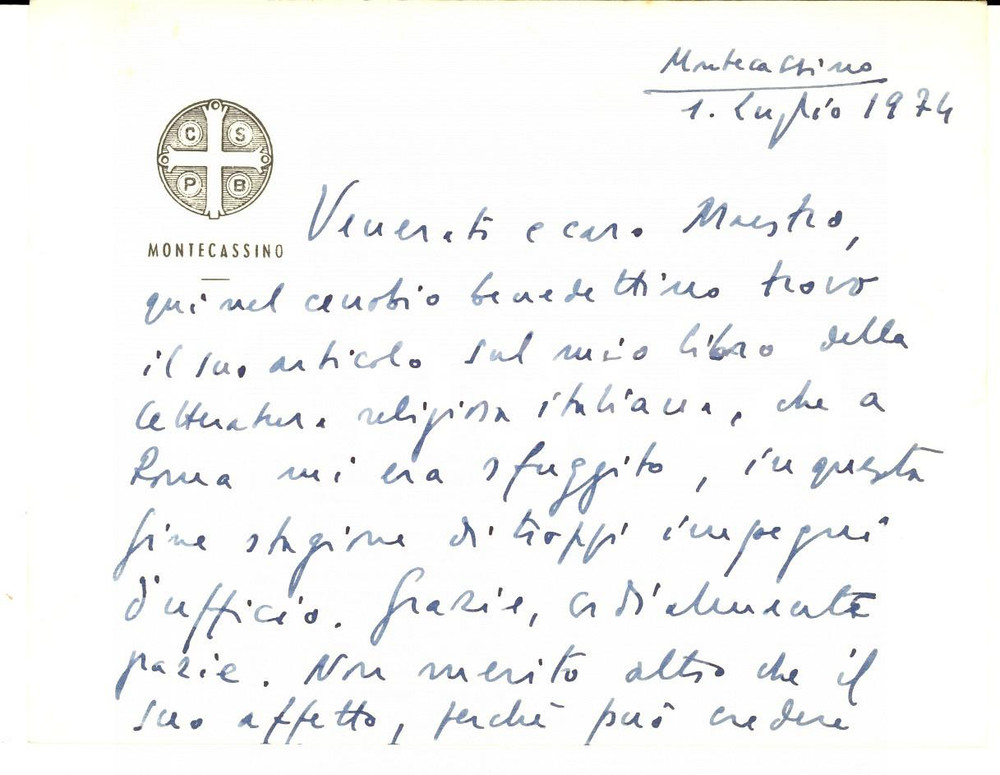 Montecassino
1. Luglio 1974
C S
P B
MONTECASSINO
Venerato e caro Maestro,
qui nel cenobio benedettino trovo
il suo articolo sul mio libro della
letteratura religiosa italiana, che a
Roma mi era sfuggito, in questa
fine stagione di troppi impegni
d'ufficio. Grazie, cordialmente
grazie. Non merito altro che il
suo affetto, perché può credere